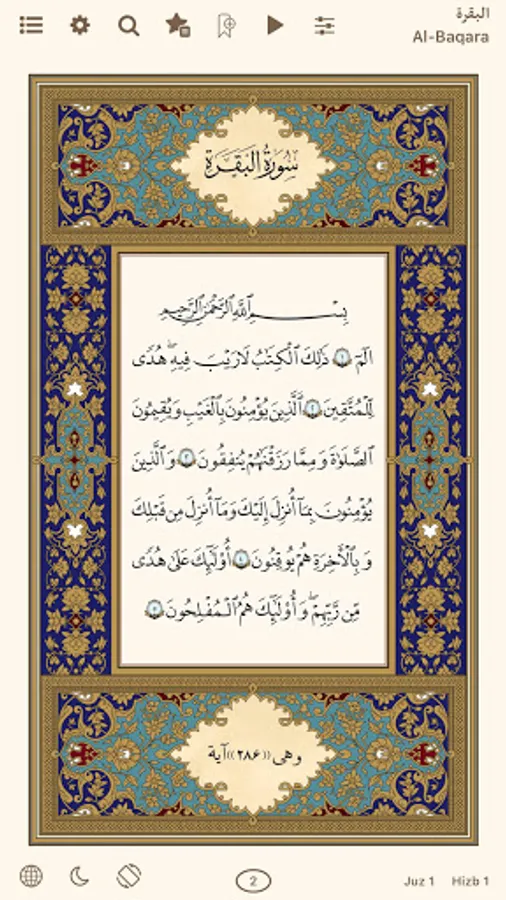 البقرة
Al-Baqara
سُورَةُ الْبَقَرَةِ
بِسْمِ اللَّهِ الرَّحْمَٰنِ الرَّحِيمِ
الٓمٓ ۝١ ذَٰلِكَ ٱلْكِتَٰبُ لَا رَيْبَ فِيهِ ۛ هُدًى
لِّلْمُتَّقِينَ ۝٢ ٱلَّذِينَ يُؤْمِنُونَ بِٱلْغَيْبِ وَيُقِيمُونَ
ٱلصَّلَوٰةَ وَمِمَّا رَزَقْنَٰهُمْ يُنفِقُونَ ۝٣ وَٱلَّذِينَ
يُؤْمِنُونَ بِمَآ أُنزِلَ إِلَيْكَ وَمَآ أُنزِلَ مِن قَبْلِكَ
وَبِٱلْأَخِرَةِ هُمْ يُوقِنُونَ ۝٤ أُوْلَٰٓئِكَ عَلَىٰ هُدًى
مِّن رَّبِّهِمْ ۖ وَأُوْلَٰٓئِكَ هُمُ ٱلْمُفْلِحُونَ ۝٥
وهى ((٢٨٦)) آية
2
Juz 1 Hizb 1